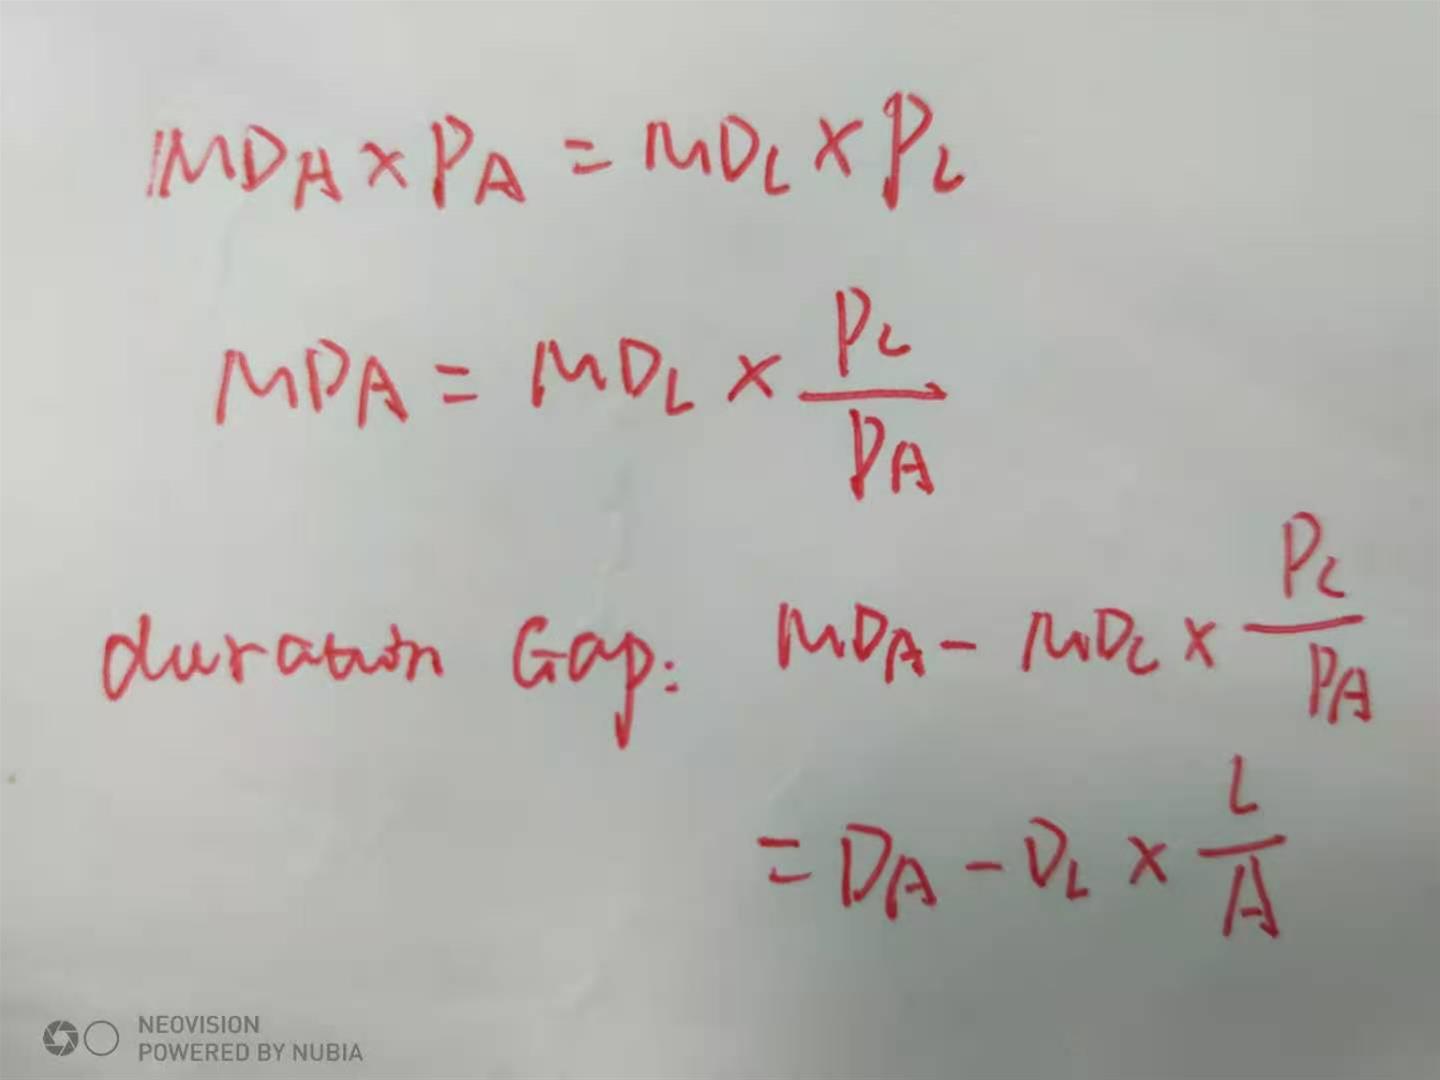 MD_A × P_A = MD_L × P_L
MD_A = MD_L × P_L / P_A
duration Gap: MD_A - MD_L × P_L / P_A
= D_A - D_L × L / A
NEOVISION
POWERED BY NUBIA